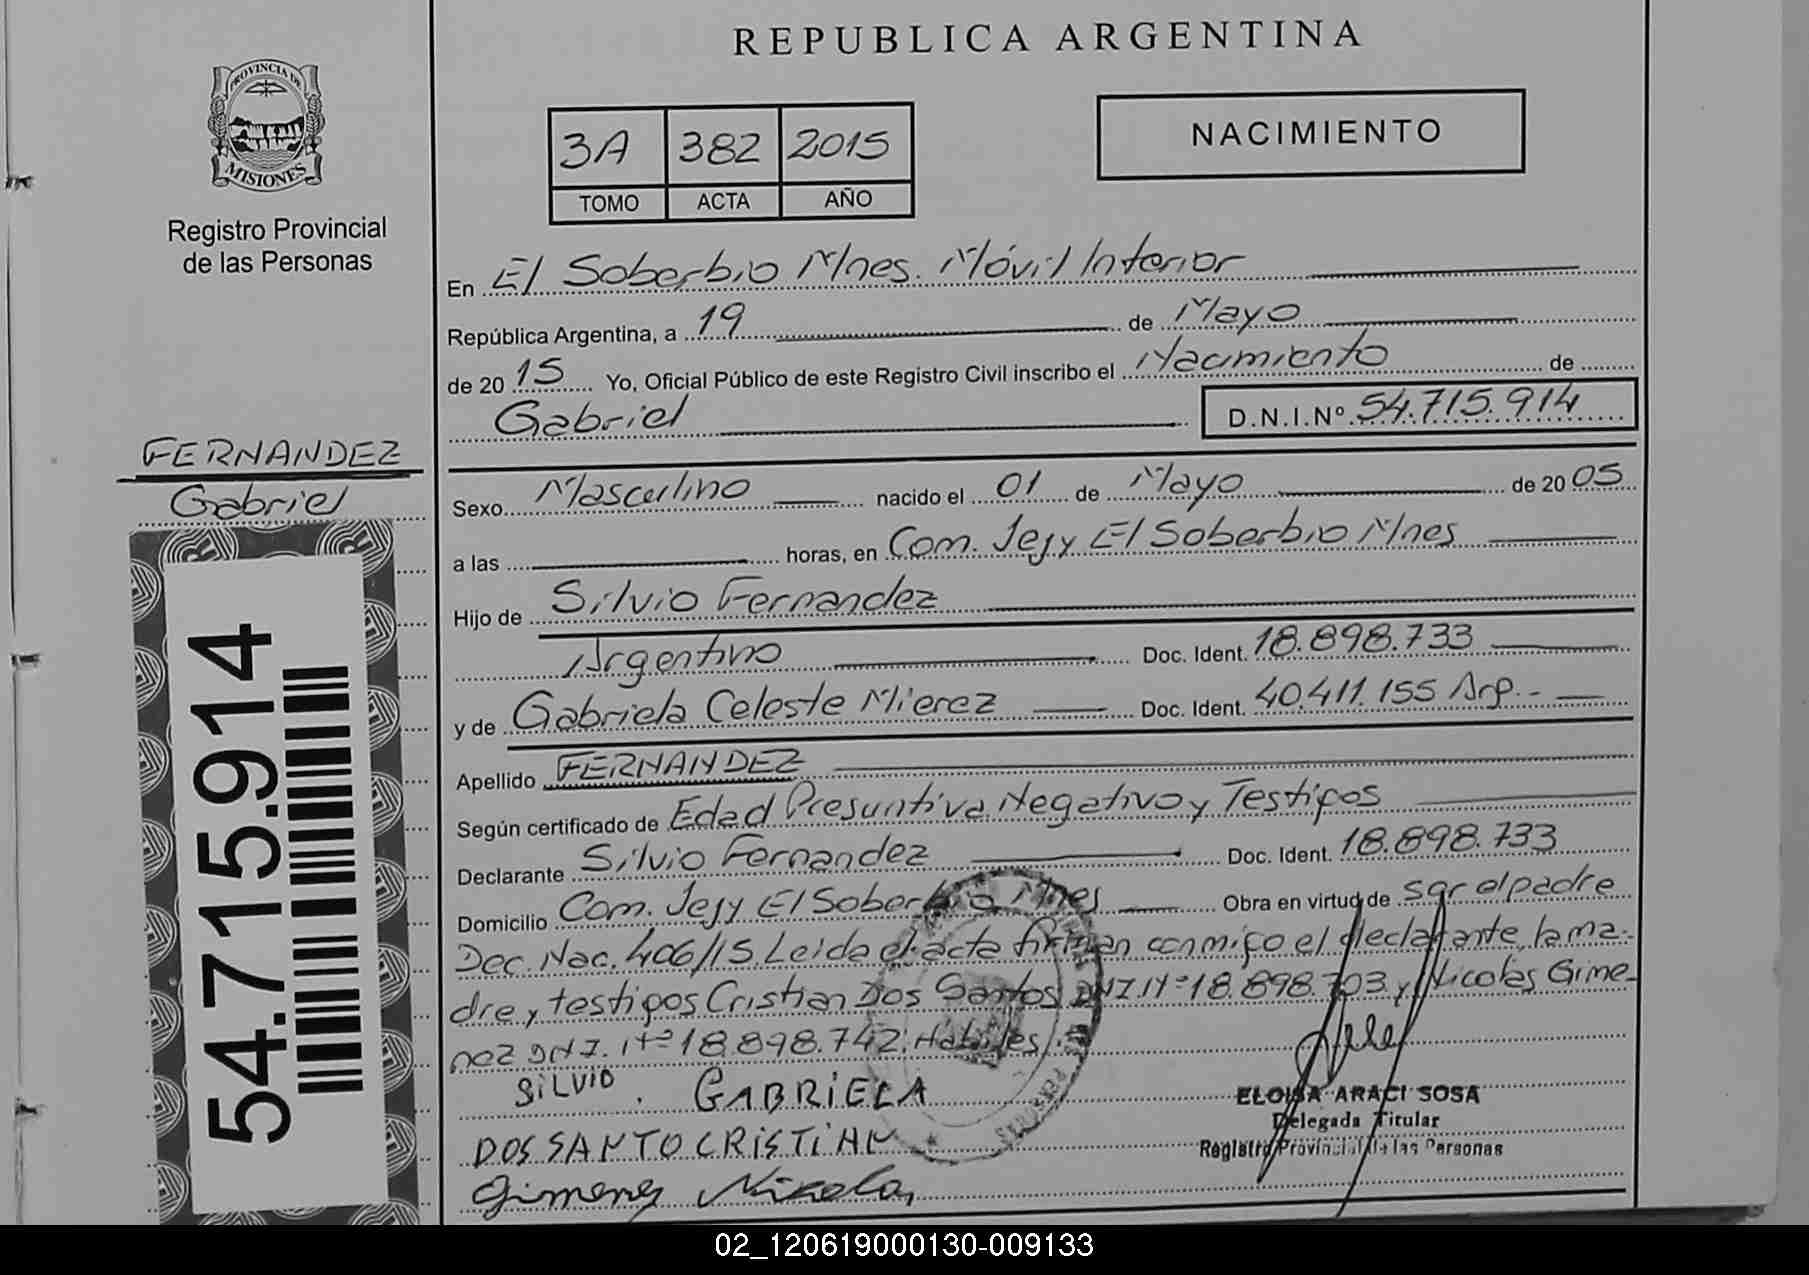 REPUBLICA ARGENTINA
PROVINCIA DE
MISIONES
Registro Provincial
de las Personas
3A 382 2015
TOMO ACTA AÑO
NACIMIENTO
En El Soberbio Mnes. Móvil Interior
República Argentina, a 19 de Mayo
de 20 15 Yo, Oficial Público de este Registro Civil inscribo el Nacimiento de
Gabriel D.N.I.Nº 54.715.914
FERNANDEZ
Gabriel
54.715.914
Sexo Masculino nacido el 01 de Mayo de 20 05
a las horas, en Com. Jejy El Soberbio Mnes
Hijo de Silvio Fernandez
Argentino Doc. Ident. 18.898.733
y de Gabriela Celeste Mierez Doc. Ident. 40.411.155 Arg.-
Apellido FERNANDEZ
Según certificado de Edad Presuntiva, Negativo y Testigos
Declarante Silvio Fernandez Doc. Ident. 18.898.733
Domicilio Com. Jejy El Soberbio Mnes Obra en virtud de ser el padre
Dec. Nac. 406/15. Leida el acta firman conmigo el declarante, la ma-
dre y testigos Cristian Dos Santos DNI.Nº 18.898.703 y Nicolas Gime-
nez DNI. Nº 18.898.742. Habiles.
SiLVIO . GABRIELA
DOS SANTO CRISTIAN
Gimenez Nikolas
ELOISA ARACI SOSA
Delegada Titular
Registro Provincial de las Personas
02_120619000130-009133